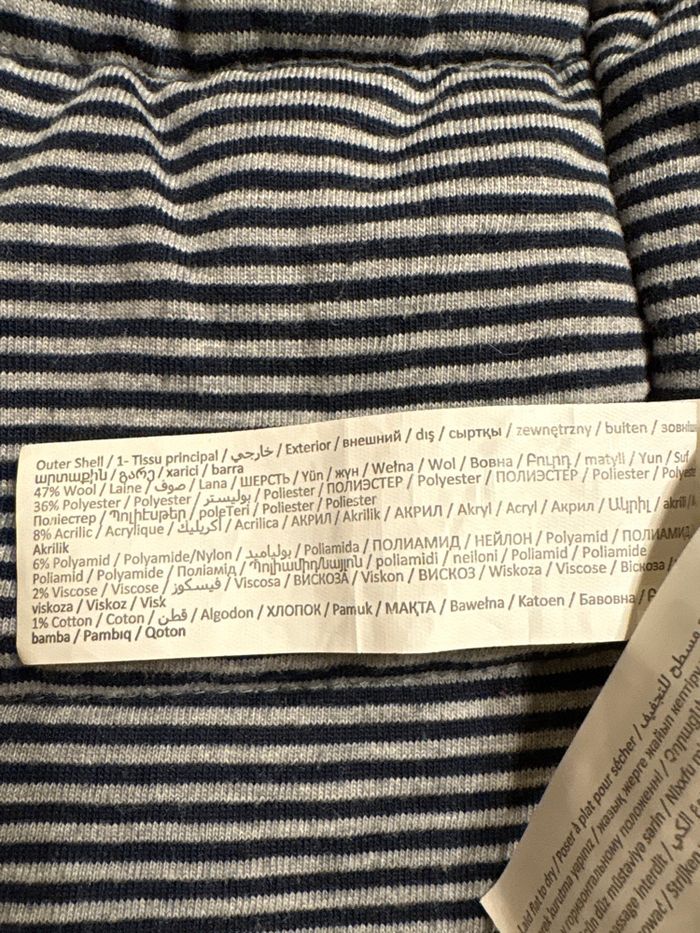 Outer Shell / 1- Tissu principal / خارجي / Exterior / внешний / dış / сыртқы / zewnętrzny / buiten / зовніш
արտաքին / გარე / xarici / barra
47% Wool / Laine / صوف / Lana / ШЕРСТЬ / Yün / жүн / Wełna / Wol / Вовна / Բուրդ / matyli / Yun / Suf
36% Polyester / Polyester / بوليستر / Poliester / ПОЛИЭСТЕР / Polyester / ПОЛИЭСТЕР / Poliester / Polye
Поліестер / Պոլիէսթեր / poleTeri / Poliester / Poliester
8% Acrilic / Acrylique / أكريليك / Acrilica / АКРИЛ / Akrilik / АКРИЛ / Akryl / Acryl / Акрил / Ակրիլ / akrili
Akrilik
6% Polyamid / Polyamide/Nylon / بولياميد / Poliamida / ПОЛИАМИД / НЕЙЛОН / Polyamid / ПОЛИАМИД
Poliamid / Polyamide / Поліамід / Պոլիամիդ/նայլոն / poliamidi / neiloni / Poliamid / Poliamide
2% Viscose / Viscose / فيسكوز / Viscosa / ВИСКОЗА / Viskon / ВИСКОЗ / Wiskoza / Viscose / Віскоза
viskoza / Viskoz / Visk
1% Cotton / Coton / قطن / Algodon / ХЛОПОК / Pamuk / МАҚТА / Bawełna / Katoen / Бавовна /
bamba / Pambıq / Qoton
مسطح للتجفيف / Laid flat to dry / Poser à plat pour sécher /
kurutma yapınız / жазық жерге жайып кептірі
горизонтальному положенні /
düz müstəviyə sərin / Nixxfu